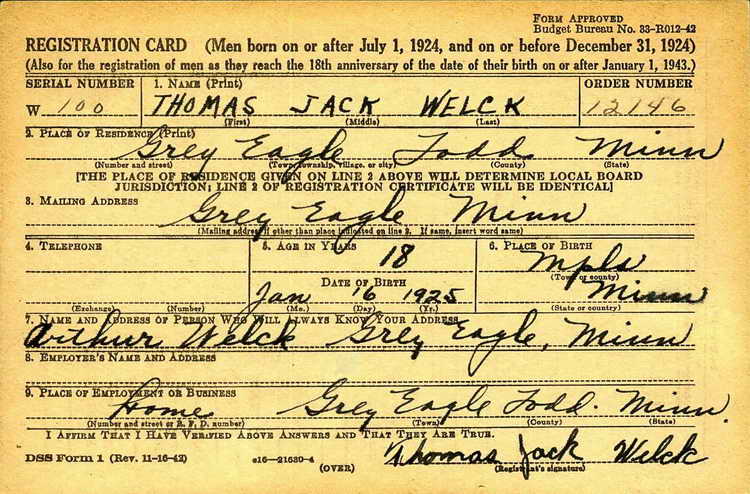 FORM APPROVED
Budget Bureau No. 33-R012-42
REGISTRATION CARD (Men born on or after July 1, 1924, and on or before December 31, 1924)
(Also for the registration of men as they reach the 18th anniversary of the date of their birth on or after January 1, 1943.)
SERIAL NUMBER 1. NAME (Print) ORDER NUMBER
W 100 THOMAS JACK WELCK 12146
(First) (Middle) (Last)
2. PLACE OF RESIDENCE (Print)
Grey Eagle Todd Minn
(Number and street) (Town, township, village, or city) (County) (State)
[THE PLACE OF RESIDENCE GIVEN ON LINE 2 ABOVE WILL DETERMINE LOCAL BOARD
JURISDICTION; LINE 2 OF REGISTRATION CERTIFICATE WILL BE IDENTICAL]
3. MAILING ADDRESS
Grey Eagle Minn
(Mailing address if other than place indicated on line 2. If same, insert word same)
4. TELEPHONE 5. AGE IN YEARS 6. PLACE OF BIRTH
18 Mpls
(Town or county)
DATE OF BIRTH
Jan 16 1925 Minn
(Exchange) (Number) (Mo.) (Day) (Yr.) (State or country)
7. NAME AND ADDRESS OF PERSON WHO WILL ALWAYS KNOW YOUR ADDRESS
Arthur Welck Grey Eagle, Minn
8. EMPLOYER'S NAME AND ADDRESS
9. PLACE OF EMPLOYMENT OR BUSINESS
Home Grey Eagle Todd. Minn.
(Number and street or R. F. D. number) (Town) (County) (State)
I AFFIRM THAT I HAVE VERIFIED ABOVE ANSWERS AND THAT THEY ARE TRUE.
Thomas Jack Welck
DSS Form 1 (Rev. 11-16-42) (OVER) (Registrant's signature)